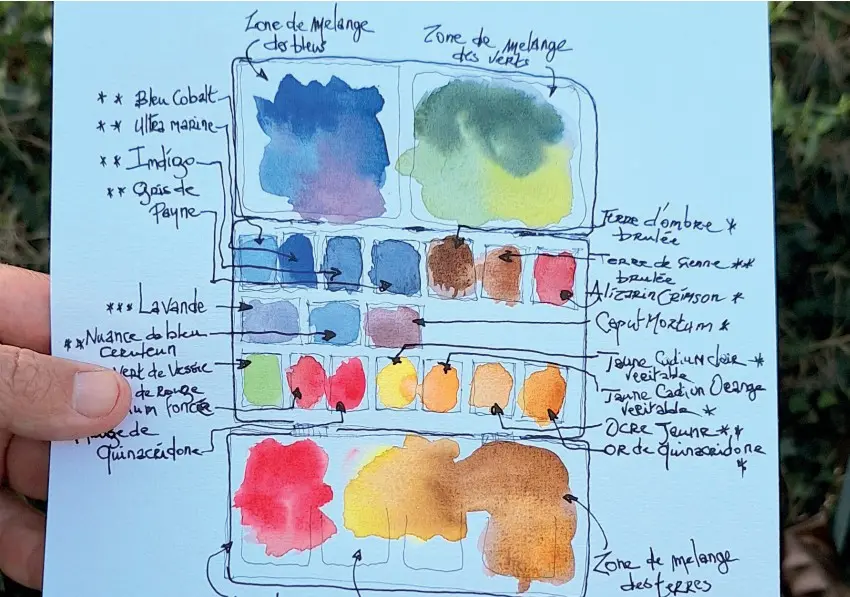 Zone de melange
des bleus
Zone de melange
des verts
** Bleu Cobalt
** Ultra marine
** Indigo
** Gris de
Payne
Terre d'ombre *
brulée
Terre de Sienne **
brulée
Alizarin Crimson *
*** Lavande
Caput Mortum *
** Nuance de bleu
ceruleun
Jaune Cadium Clair *
veritable
vert de Vessie
Jaune Cadiun Orange
veritable *
de Rouge
foncée
Ocre Jaune **
de
Quinacridone
OR de Quinacridone
*
Zone de melange
des terres